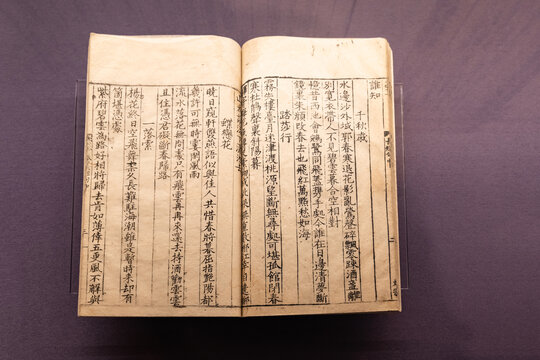 誰知
千秋歲
水邊沙外城郭春寒退花影亂鶯聲碎飄零疎酒盞離
別寬衣帶人不見碧雲暮合空相對
憶昔西池會鵷鷺同飛蓋攜手處今誰在日邊清夢斷
鏡裏朱顏改春去也飛紅萬點愁如海
踏莎行
霧失樓臺月迷津渡桃源望斷無尋處可堪孤館閉春
寒杜鵑聲裏斜陽暮
蝶戀花
曉日窺軒雙燕語似與佳人共惜春將暮屈指艷陽都
幾許可無時霎閒風雨
流水落花無問處只有飛雲冉冉來還去持酒勸雲雲
且住憑君礙斷春歸路
一落索
楊花終日空飛舞奈久長難駐海潮雖是暫時來却有
箇堪憑處
紫府碧雲為路好相將歸去肯如薄倖五更風不解與